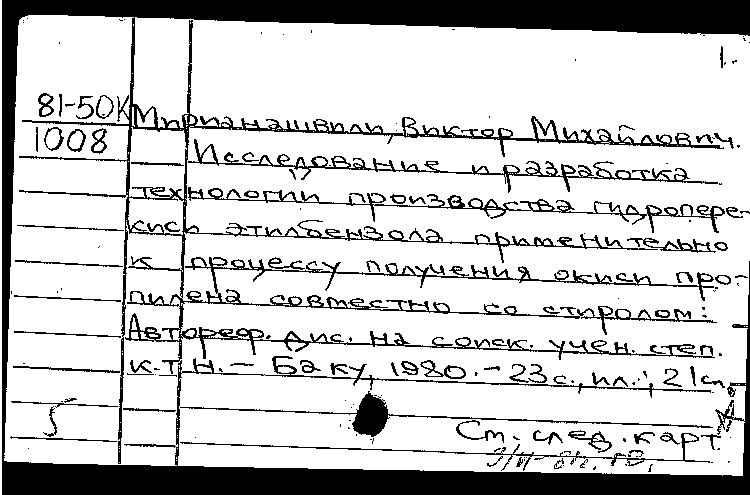 1.
81-50К Мирианашвили, Виктор Михайлович.
1008 Исследование и разработка
технологии производства гидропере-
киси этилбензола применительно
к процессу получения окиси про-
пилена совместно со стиролом:
Автореф. дис. на соиск. учен. степ.
к.т.н. - Баку, 1980. - 23 с., ил.; 21 см.
5
Ст. след. карт.